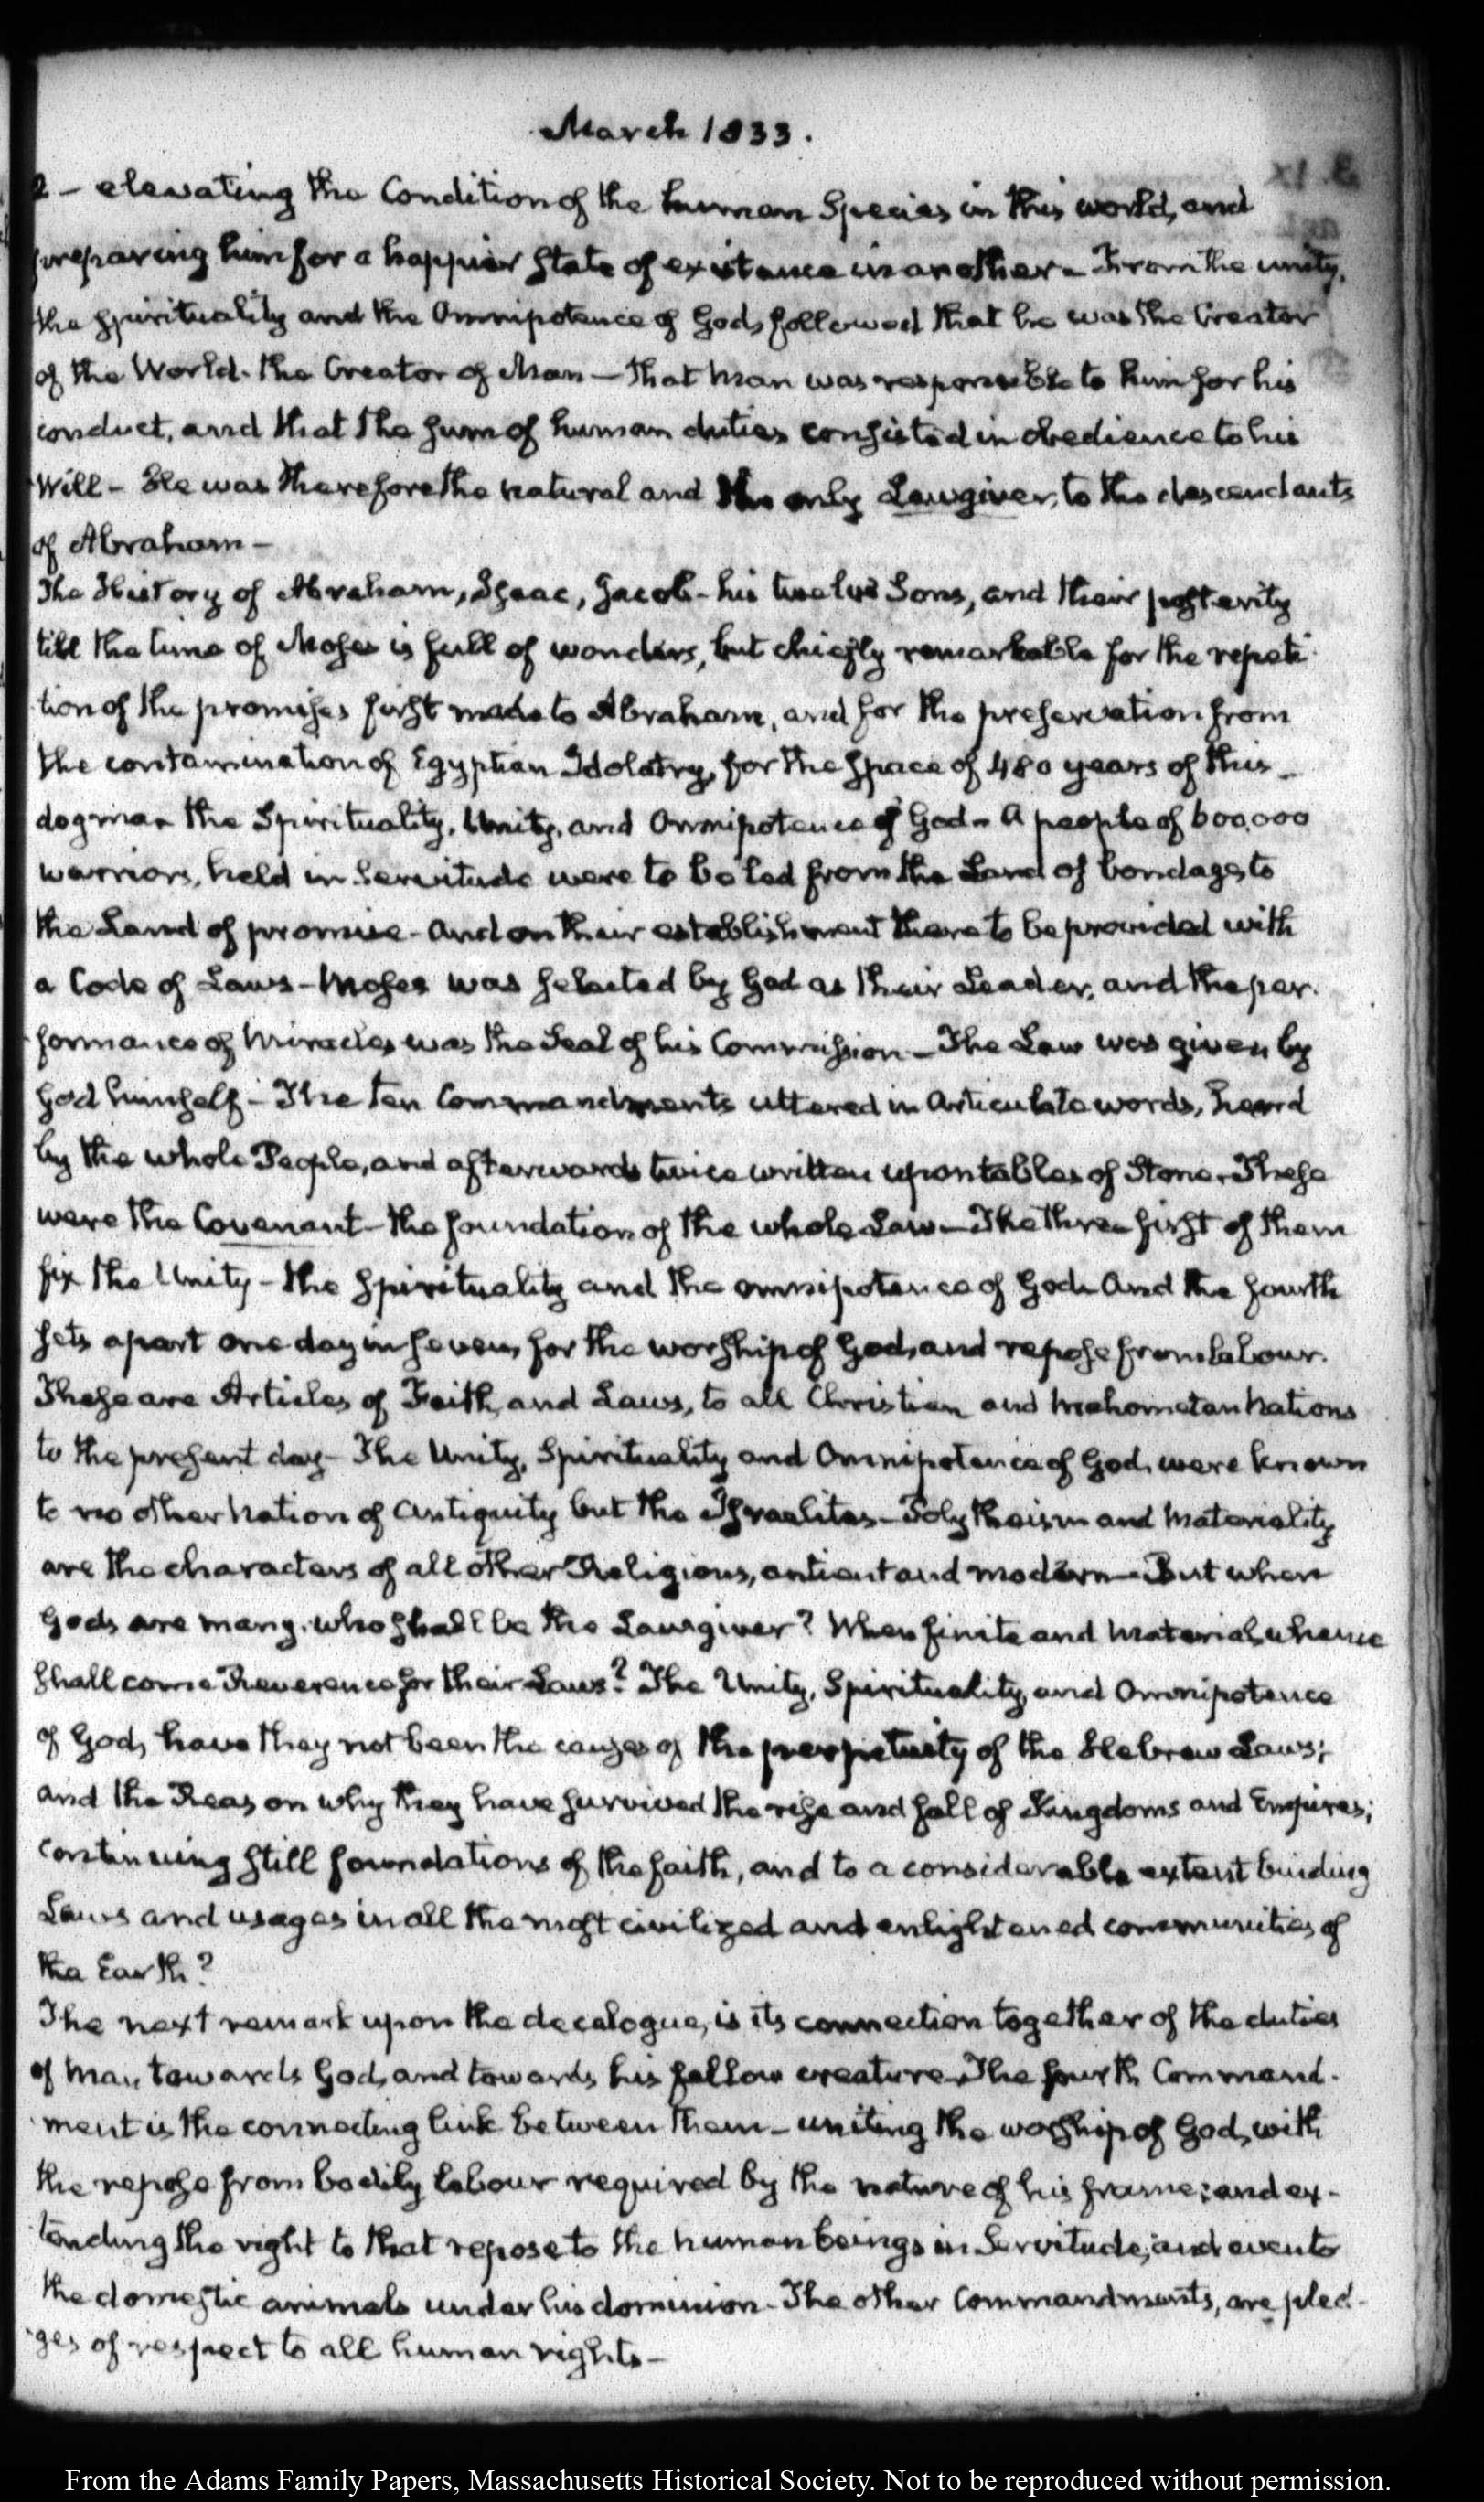 March 1833.
2 - elevating the Condition of the human Species in this world, and
preparing him for a happier state of existence in another - From the unity,
the spirituality and the Omnipotence of God, followed that he was the Creator
of the World. the Creator of Man - that man was responsible to him for his
conduct, and that the sum of human duties consisted in obedience to his
Will - He was therefore the natural and the only Lawgiver, to the descendants
of Abraham -
The History of Abraham, Isaac, Jacob - his twelve Sons, and their posterity
till the time of Moses is full of wonders, but chiefly remarkable for the repeti
tion of the promises first made to Abraham, and for the preservation from
the contamination of Egyptian Idolatry, for the space of 480 years of this
dogma - the Spirituality, Unity, and Omnipotence of God - A people of 600,000
warriors, held in Servitude were to be led from the Land of bondage, to
the Land of promise - And on their establishment there to be provided with
a Code of Laws - Moses was selected by God as their Leader, and the per-
formance of Miracles was the Seal of his Commission - The Law was given by
God himself - The ten Commandments uttered in Articulate words, heard
by the whole People, and afterwards twice written upon tables of Stone. These
were the Covenant - the foundation of the whole Law - The three first of them
fix the Unity - the Spirituality and the omnipotence of God - And the fourth
sets apart one day in seven, for the worship of God, and repose from labour.
These are Articles of Faith, and Laws, to all Christian and Mahometan Nations
to the present day - The Unity, Spirituality and Omnipotence of God, were known
to no other Nation of Antiquity but the Israelites - Polytheism and Materiality
are the characters of all other Religions, antient and modern - But when
Gods are many, who shall be the Lawgiver? When finite and Material, whence
shall come Reverence for their Laws? The Unity, Spirituality, and Omnipotence
of God, have they not been the causes of the perpetuity of the Hebrew Laws;
and the Reason why they have survived the rise and fall of Kingdoms and Empires;
continuing still foundations of the faith, and to a considerable extent binding
Laws and usages in all the most civilized and enlightened communities of
the Earth?
The next remark upon the decalogue, is its connection together of the duties
of Man, towards God, and towards his fellow creature - The fourth Command-
ment is the connecting link between them - uniting the worship of God, with
the repose from bodily labour required by the nature of his frame; and ex-
tending the right to that repose to the human beings in Servitude; and even to
the domestic animals under his dominion - The other Commandments, are pled-
ges of respect to all human rights -
From the Adams Family Papers, Massachusetts Historical Society. Not to be reproduced without permission.